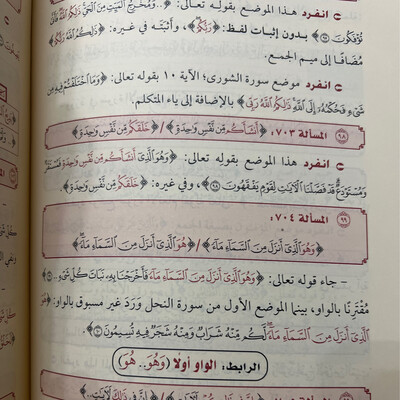 انفرد هذا الموضع بقوله تعالى: ﴿..وَمُخْرِجُ الْمَيِّتِ مِنَ الْحَيِّ ذَٰلِكُمُ اللَّهُ فَأَنَّىٰ
تُؤْفَكُونَ ۝٩٥﴾ بدون إثبات لفظ: ﴿رَبُّكُمْ﴾، وأثبته في غيره: ﴿ذَٰلِكُمُ اللَّهُ رَبُّكُمْ﴾
مُضافًا إلى ميم الجمع.
انفرد موضع سورة الشورى: الآية ١٠ بقوله تعالى: ﴿وَمَا اخْتَلَفْتُمْ فِيهِ مِن
شَيْءٍ فَحُكْمُهُ إِلَى اللَّهِ ذَٰلِكُمُ اللَّهُ رَبِّي﴾ بالإضافة إلى ياء المتكلم.
٩٨ المسألة ٧٠٣: ﴿أَنشَأَكُم مِّن نَّفْسٍ وَاحِدَةٍ﴾ / ﴿خَلَقَكُم مِّن نَّفْسٍ وَاحِدَةٍ﴾
انفرد هذا الموضع بقوله تعالى: ﴿وَهُوَ الَّذِي أَنشَأَكُم مِّن نَّفْسٍ وَاحِدَةٍ فَمُسْتَقَرٌّ
وَمُسْتَوْدَعٌ قَدْ فَصَّلْنَا الْآيَاتِ لِقَوْمٍ يَفْقَهُونَ ۝٩٨﴾، وفي غيره: ﴿خَلَقَكُم مِّن نَّفْسٍ وَاحِدَةٍ﴾
٩٩ المسألة ٧٠٤:
﴿وَهُوَ الَّذِي أَنزَلَ مِنَ السَّمَاءِ مَاءً﴾ / ﴿هُوَ الَّذِي أَنزَلَ مِنَ السَّمَاءِ مَاءً﴾
- جاء قوله تعالى: ﴿وَهُوَ الَّذِي أَنزَلَ مِنَ السَّمَاءِ مَاءً فَأَخْرَجْنَا بِهِ نَبَاتَ كُلِّ شَيْءٍ..﴾
مُقْتَرِنًا بالواو، بينما الموضع الأول من سورة النحل وَرَدَ غير مسبوق بالواو: ﴿هُوَ
الَّذِي أَنزَلَ مِنَ السَّمَاءِ مَاءً لَّكُم مِّنْهُ شَرَابٌ وَمِنْهُ شَجَرٌ فِيهِ تُسِيمُونَ ۝١٠﴾
الرابط: الواو أولًا (وَهُوَ.. هُوَ)